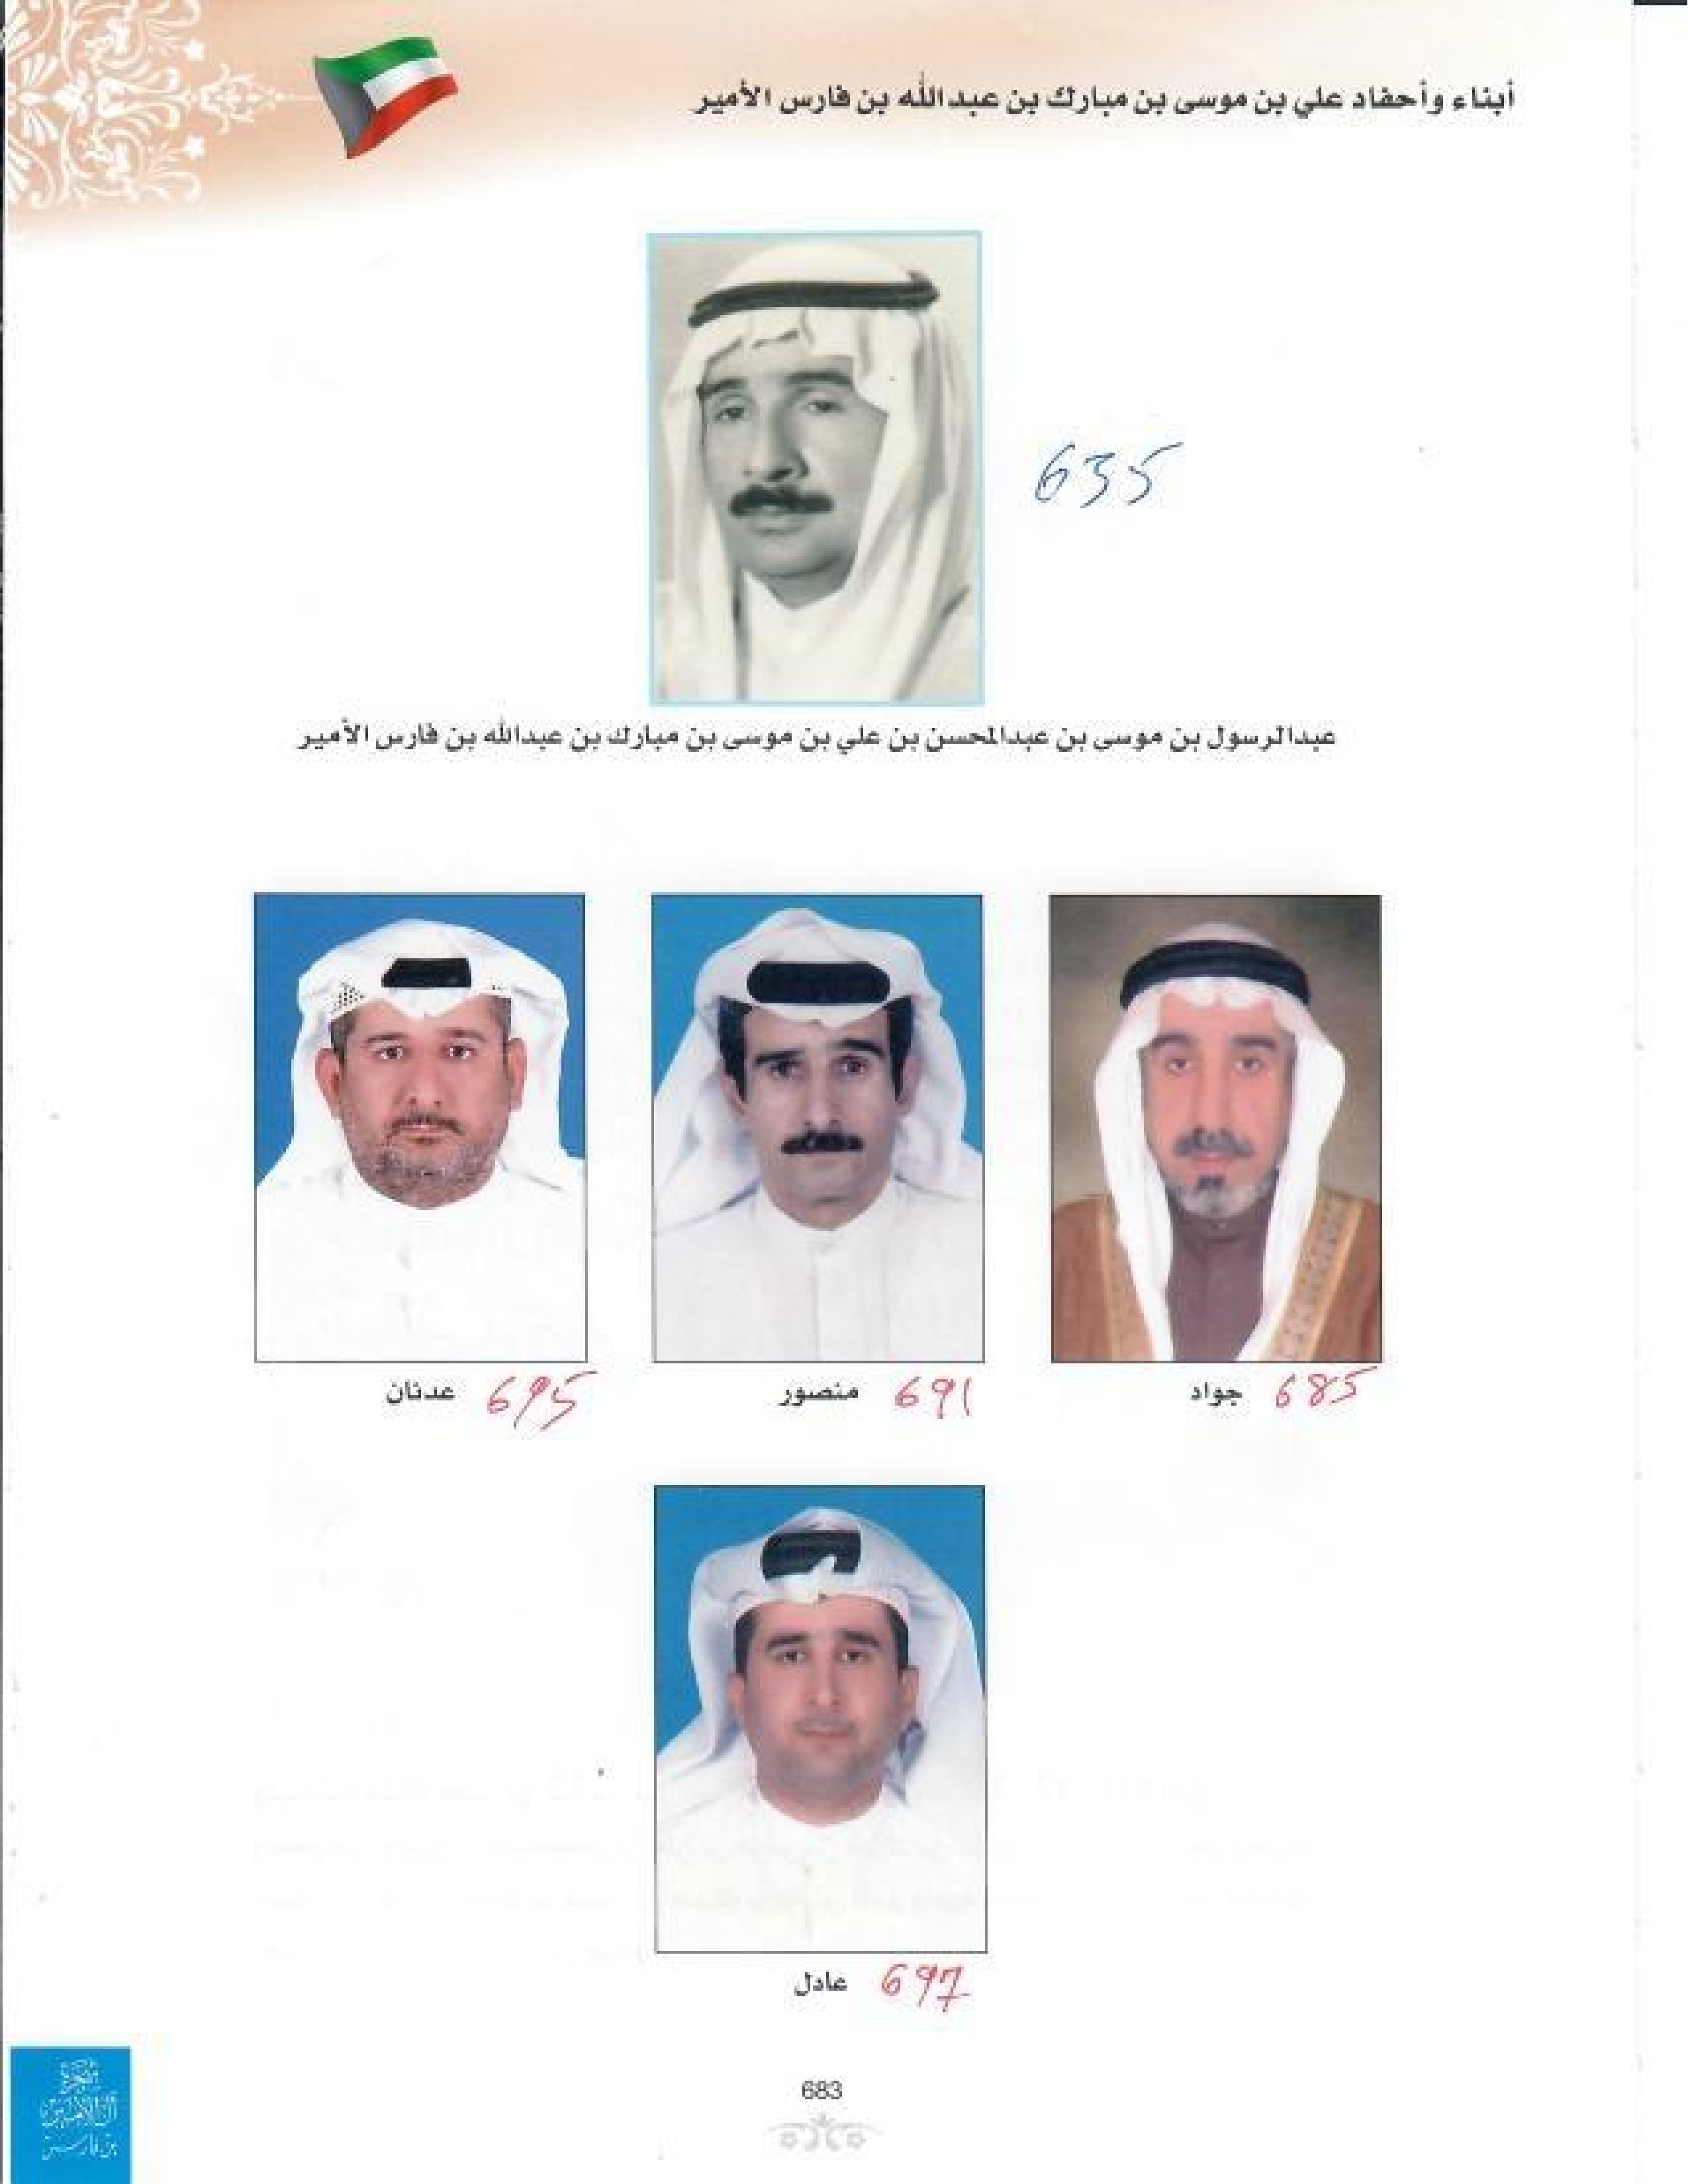 أبناء وأحفاد علي بن موسى بن مبارك بن عبدالله بن فارس الأمير
635
عبدالرسول بن موسى بن عبدالمحسن بن علي بن موسى بن مبارك بن عبدالله بن فارس الأمير
جواد 685
منصور 691
عدنان 695
عادل 697
شجرة
آل الأمير
بن فارس
683